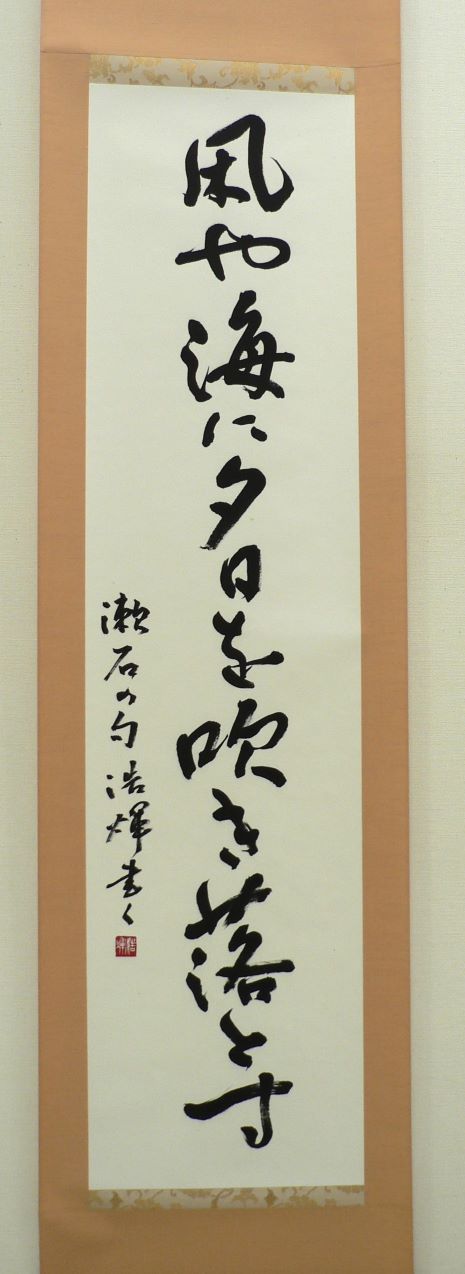 凩や海に夕日を吹き落とす
漱石の句 浩輝書く